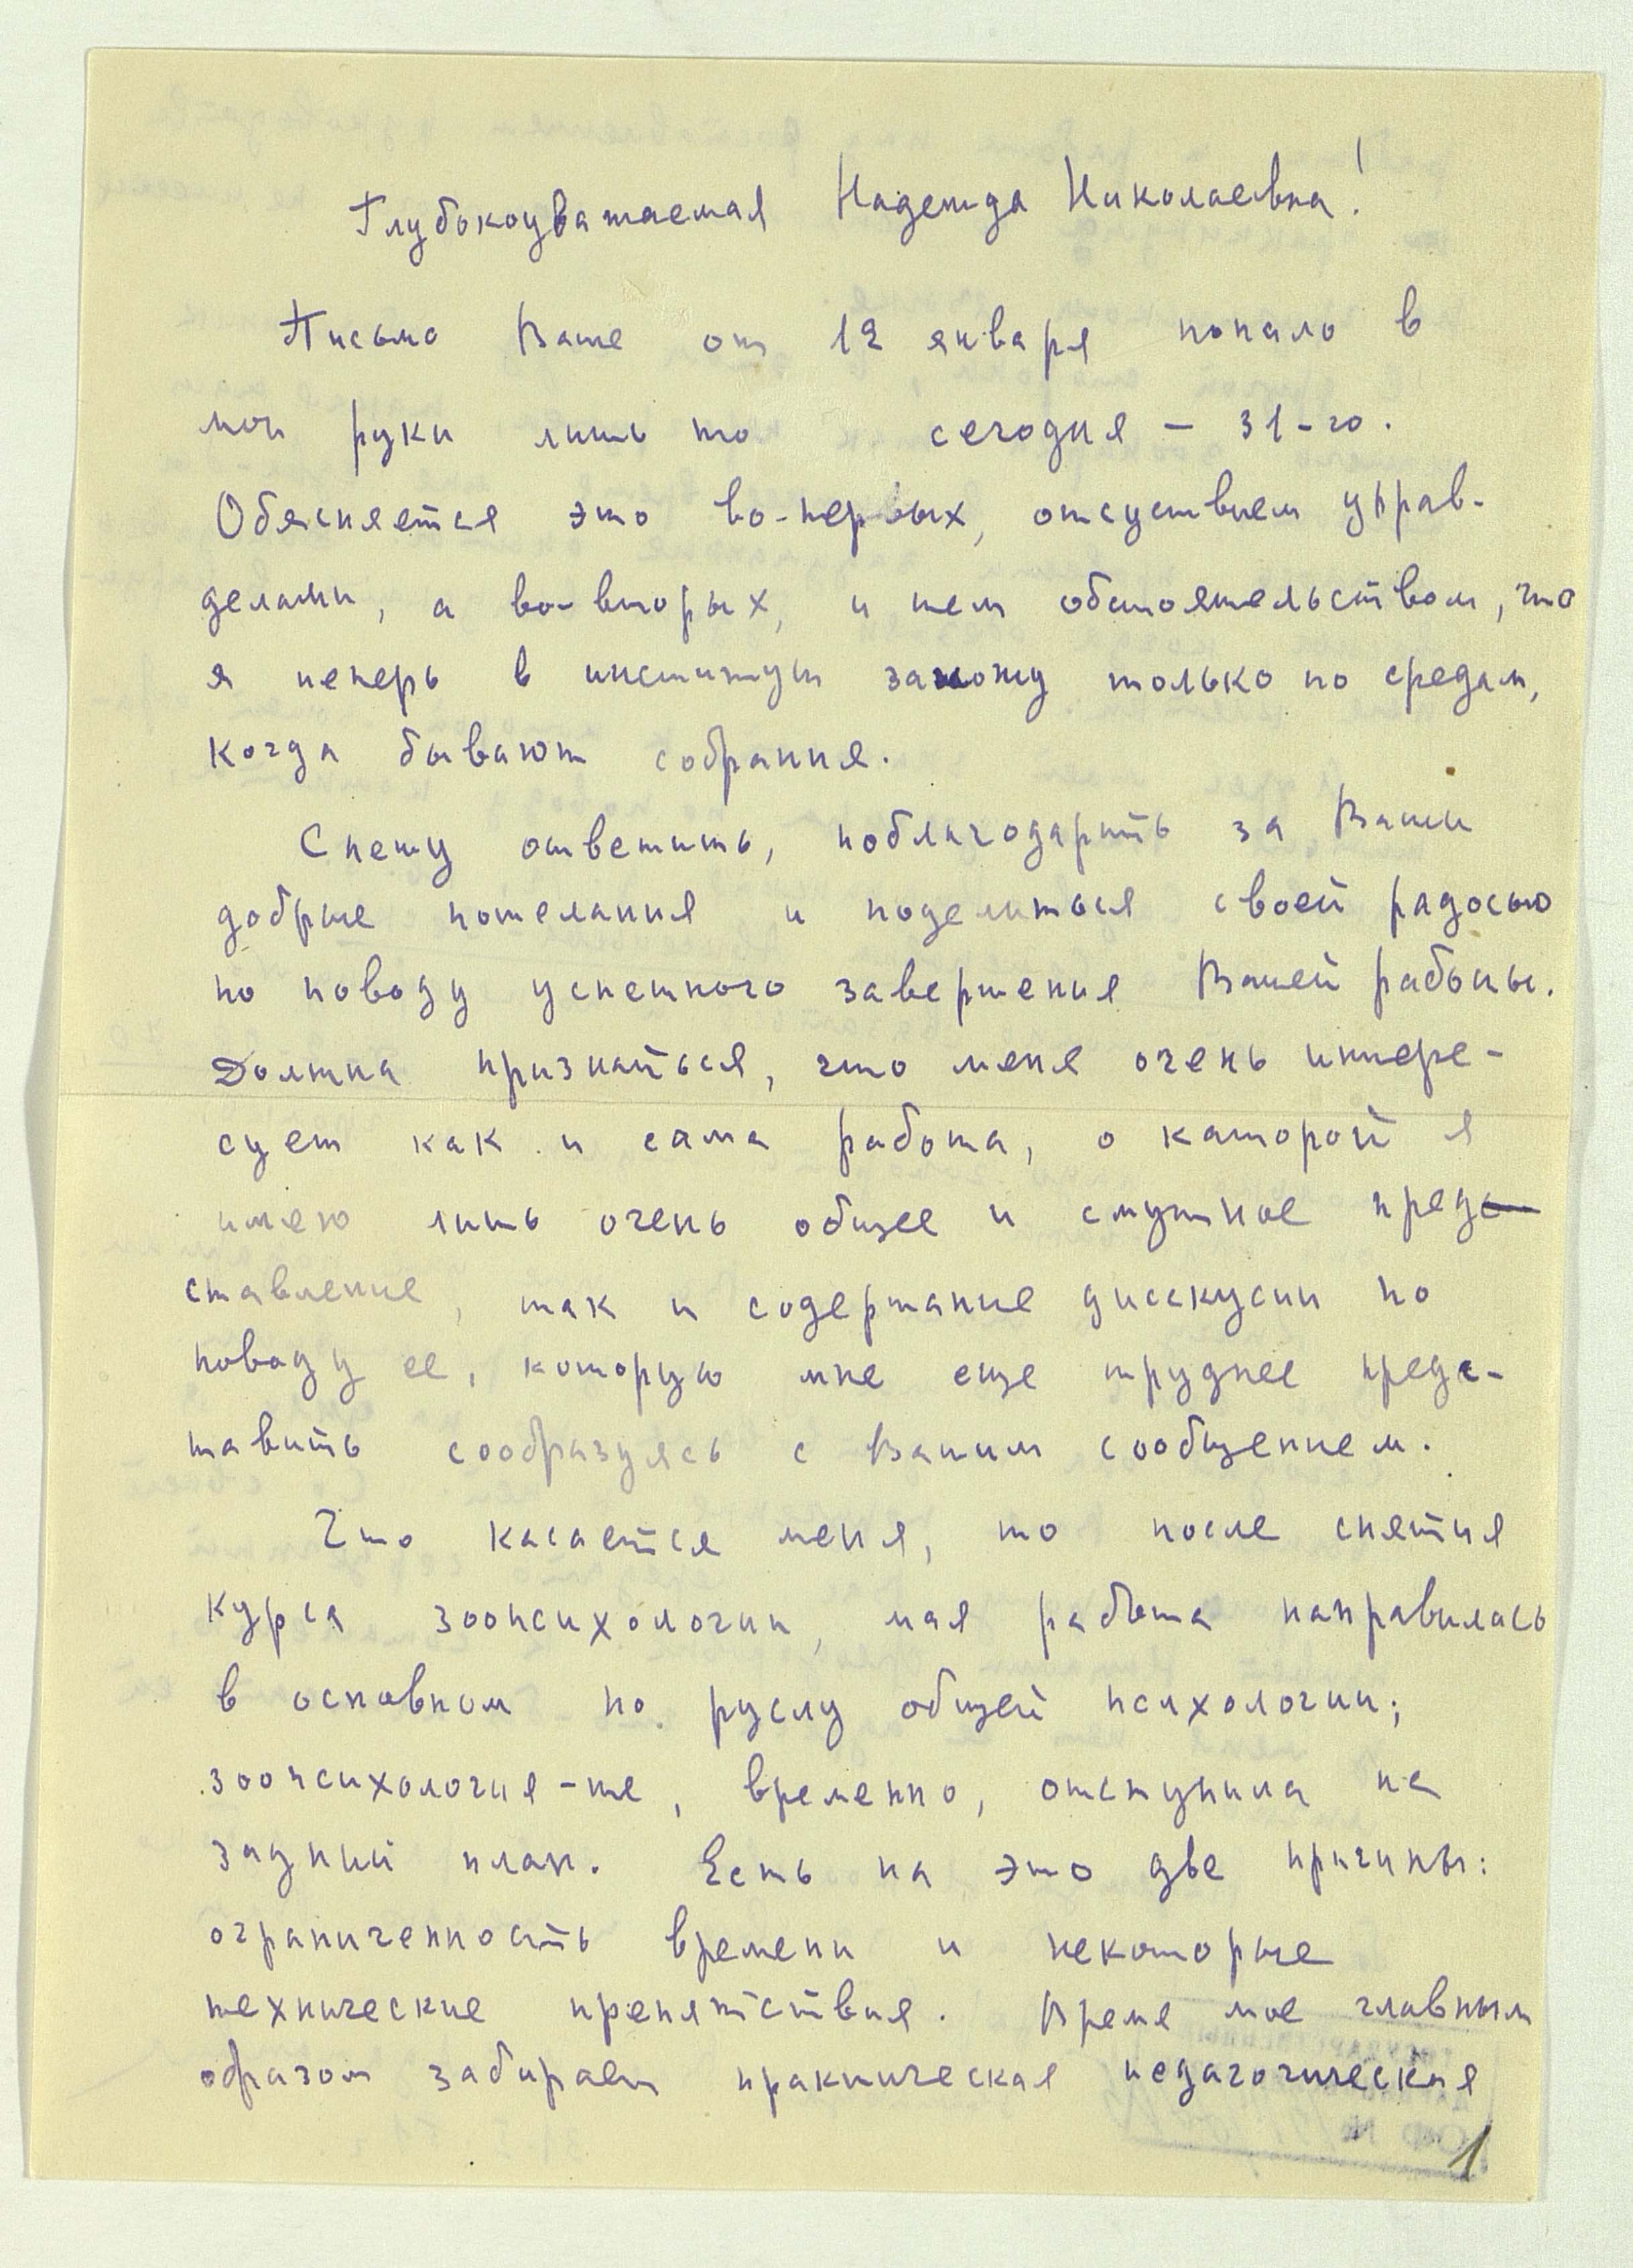 Глубокоуважаемая Надежда Николаевна!
Письмо Ваше от 12 января попало в
мои руки лишь то сегодня – 31-го.
Обясняется это во-первых, отсуствием управ-
делами, а во-вторых, и тем обстоятельством, что
я теперь в институт захожу только по средам,
когда бывают собрания.
Спешу ответить, поблагодарить за Ваши
добрые пожелания и поделиться своей радосью
по поводу успешного завершения Вашей работы.
Должна признаться, что меня очень интере-
сует как и сама работа, о каторой я
имею лишь очень общее и смутное пред
ставление, так и содержание дисскусии по
поводу ее, которую мне еще труднее предс-
тавить сообразуясь с Вашим сообщением.
Что касается меня, то после снятия
курса зоопсихологии, моя работа направилась
в основном по руслу общей психологии;
зоопсихология-же, временно, отступила на
задний план. Есть на это две причины:
ограниченность времени и некоторые
технические препятствия. Время мое главным
образом забирает практическая педагогическая
1